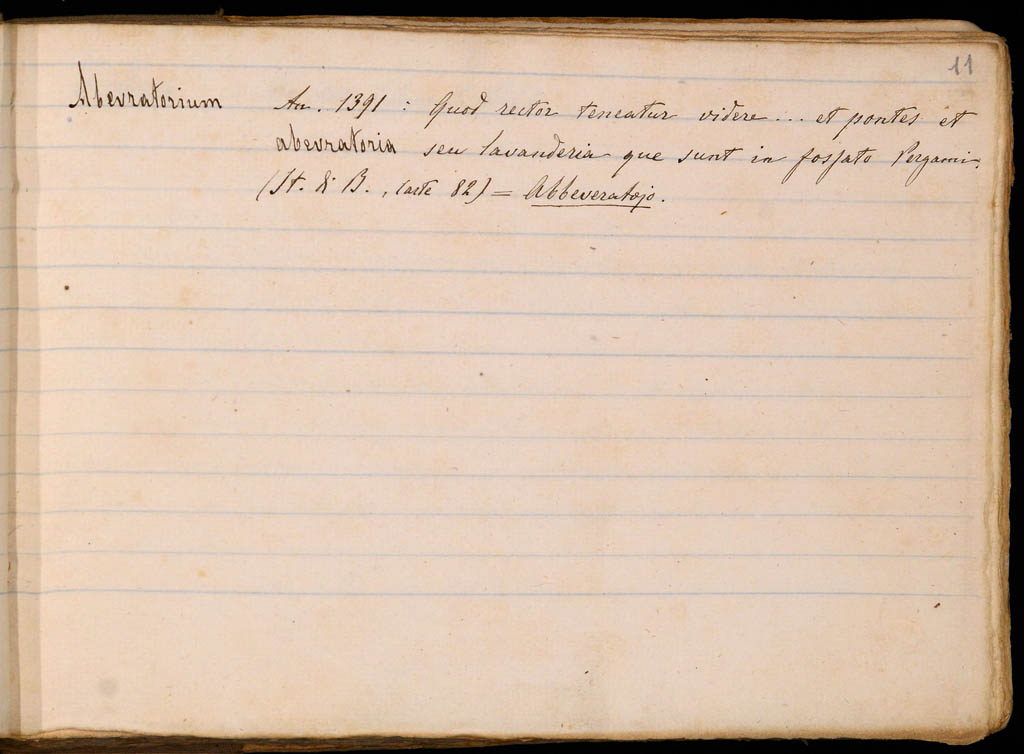 11
Abevratorium An. 1391 : Quod rector teneatur videre ... et pontes et
abevratoria seu lavanderia que sunt in fossato Pergami.
(St. di B., carte 82) = Abbeveratojo.